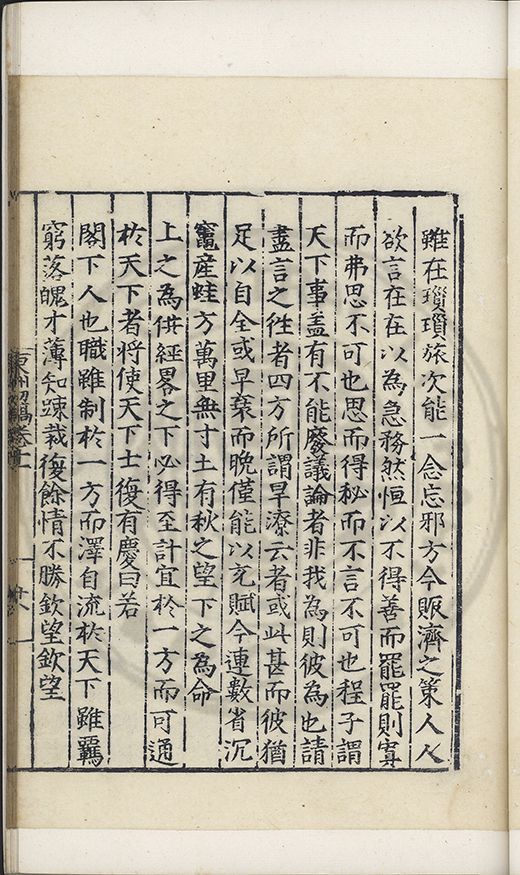 雖在瓚瑣旅次能一念忘邪方今賑濟之策人人
欲言在在以為急務然恒以不得善而罷罷則寘
而弗思不可也思而得秘而不言不可也程子謂
天下事盖有不能廢議論者非我為則彼為也請
盡言之徃者四方所謂旱潦云者或此甚而彼猶
足以自全或早衰而晚僅能以充賦今連數省沉
竈産蛙方萬里無寸土有秋之望下之為命
上之為供經畧之下必得至計宜於一方而可通
於天下者將使天下士復有慶曰若
閣下人也職雖制於一方而澤自流於天下雖羇
窮落魄才薄知踈裁復餘情不勝欽望欽望
東洲初稿卷十二